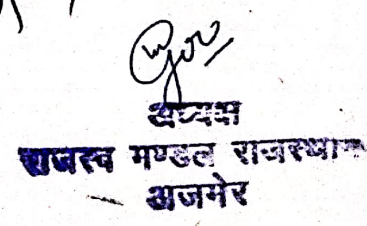 अध्यक्ष
राजस्व मण्डल राजस्थान
अजमेर